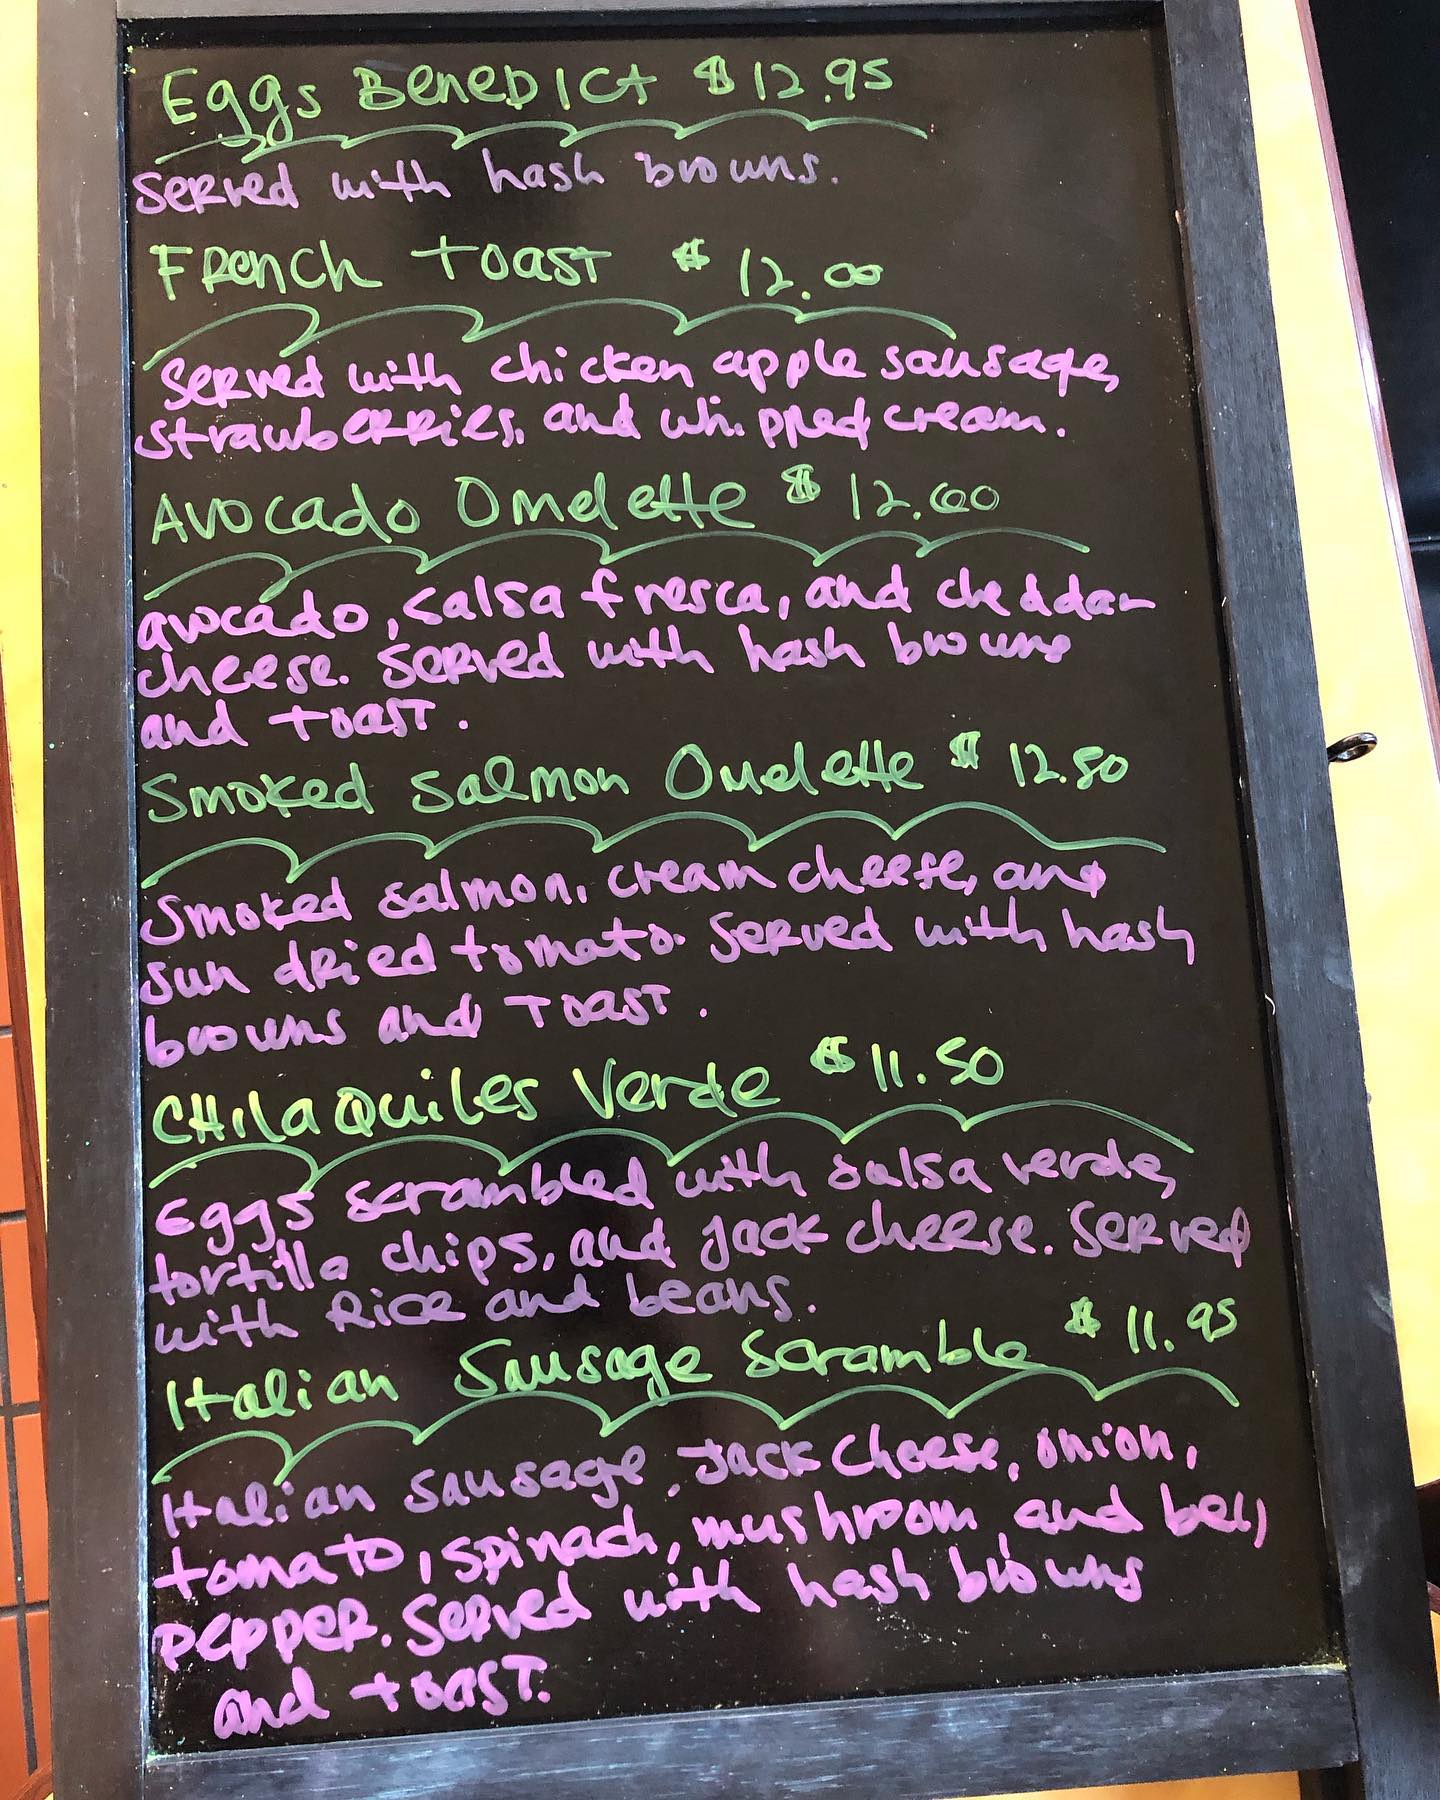 Eggs Benedict $12.95
Served with hash browns.
French Toast $12.00
Served with chicken apple sausage,
strawberries, and whipped cream.
Avocado Omelette $12.00
avocado, salsa fresca, and cheddar
cheese. Served with hash browns
and toast.
Smoked Salmon Omelette $12.50
Smoked salmon, cream cheese, and
sun dried tomato. Served with hash
browns and toast.
Chilaquiles Verde $11.50
Eggs scrambled with salsa verde,
tortilla chips, and jack cheese. Served
with Rice and beans.
Italian Sausage Scramble $11.95
Italian sausage, Jack cheese, onion,
tomato, spinach, mushroom, and bell
pepper. Served with hash browns
and toast.